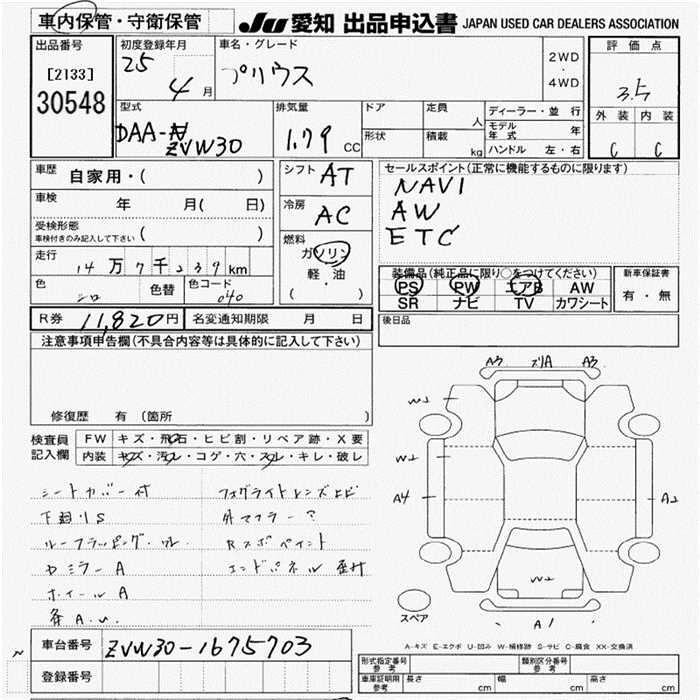 車内保管・守衛保管
JU 愛知 出品申込書 JAPAN USED CAR DEALERS ASSOCIATION
出品番号
[2133]
30548
初度登録年月
25
4 月
車名・グレード
プリウス
2WD
・
4WD
評価点
3.5
外装 内装
C C
型式
DAA-
ZVW30
排気量
1.79 CC
ドア
形状
定員 人
積載 kg
ディーラー・並行
モデル年式 年
ハンドル 左・右
車歴
自家用・( )
車検
年 月( 日)
受検形態
車検付きのみ記入して下さい ( )
走行
14万7千239km
色 シロ 色替 色コード 040
シフト AT
冷房 AC
燃料
ガソリン
軽・油
( )
セールスポイント(正常に機能するものに限ります)
NAVI
AW
ETC
装備品(純正品に限り○をつけてください)
PS PW エアB AW
SR ナビ TV カワシート
新車保証書
有・無
後日品
R券 11,820円 名変通知期限 月 日
注意事項申告欄(不具合内容等は具体的に記入して下さい)
修復歴 有 (箇所
検査員
記入欄
FW キズ・飛石・ヒビ割・リペア跡・X要
内装 キズ・汚レ・コゲ・穴・スレ・キレ・破レ
シートカバー付
下廻りS
ルーフラッピング・
ミラーA
ホイールA
フォグライトレンズヒビ
外マフラー?
Rスポペイント
エンドパネル
A3 スリA A3
W1
W2
A4
A2
W2
A1
スペア
A-キズ E-エクボ U-凹み W-補修跡 S-サビ C-腐食 XX-交換済
車台番号 ZVW30-1675703
登録番号
形式指定番号
参考
類別区分番号
参考
車庫証明用
参考
長さ cm 幅 cm 高さ cm